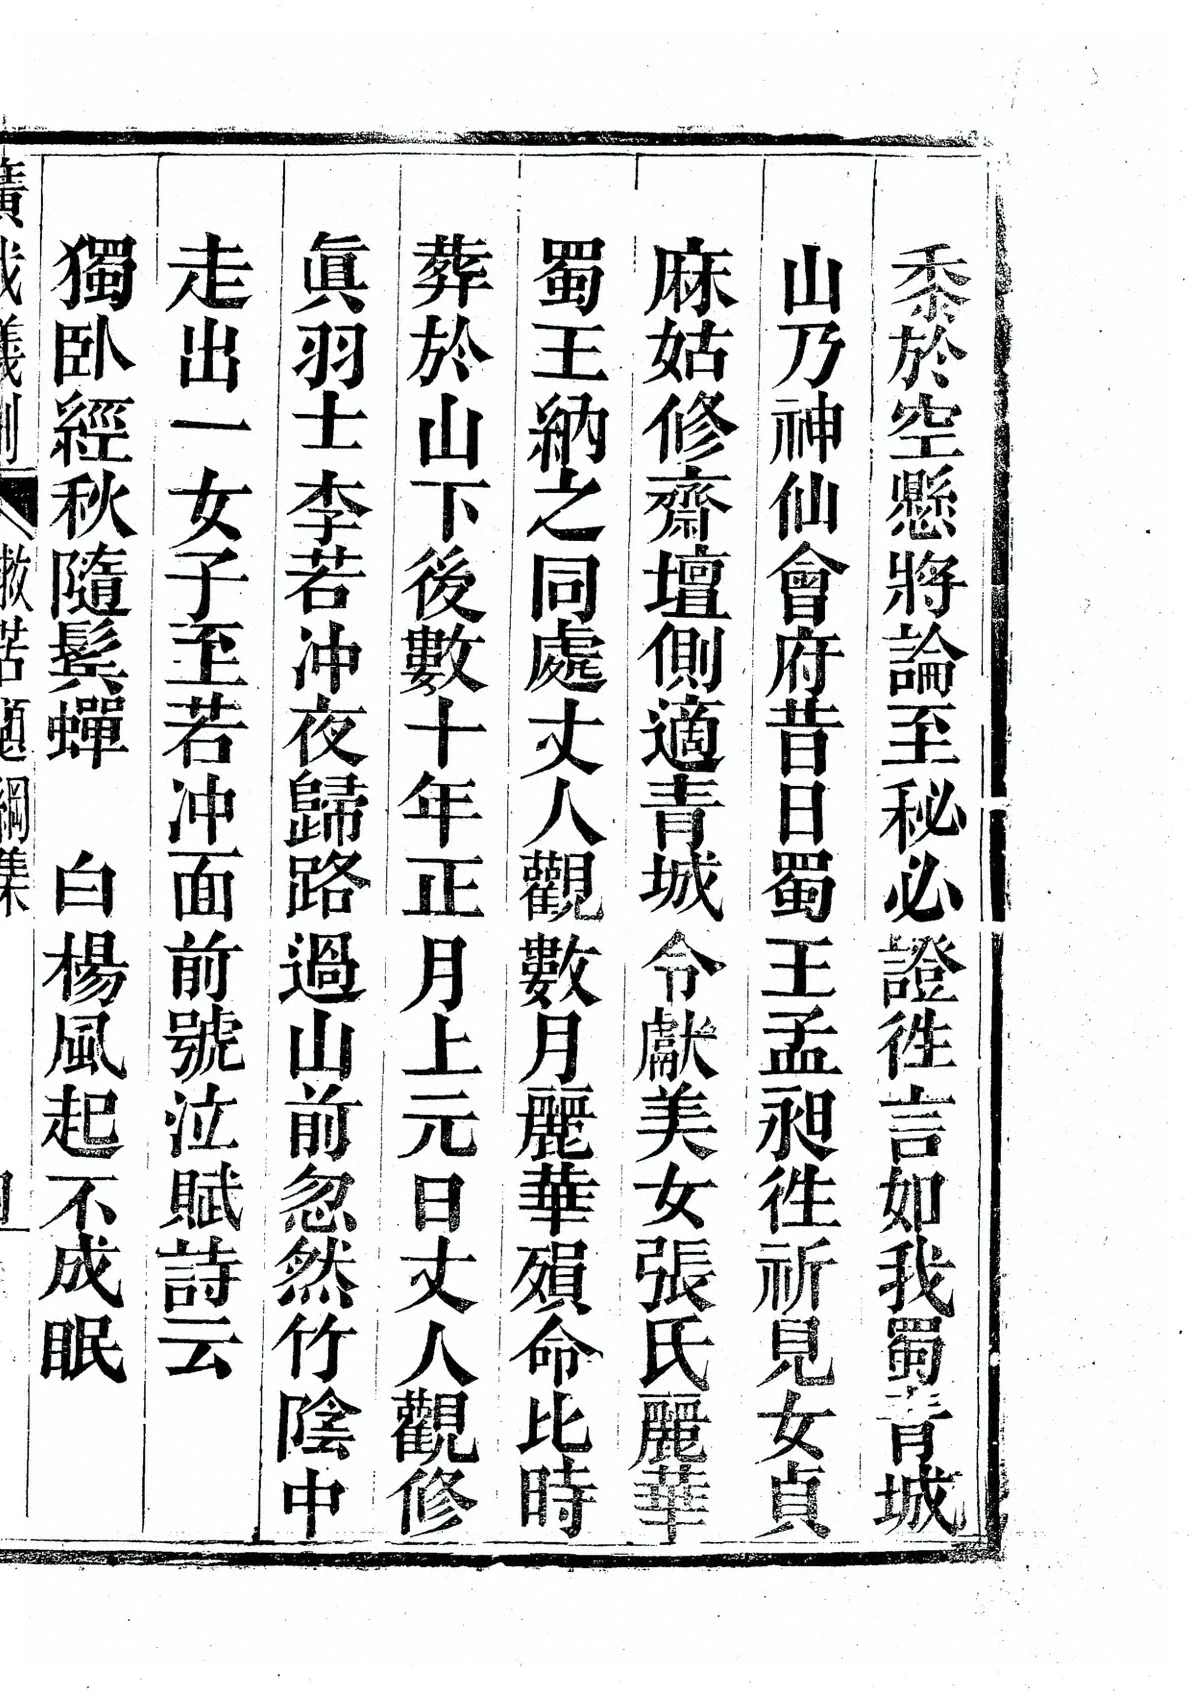 黍於空懸將論至秘必證徃言如我蜀青城
山乃神仙會府昔日蜀王孟昶徃祈見女貞
麻姑修齋壇側適青城令獻美女張氏麗華
蜀王納之同處丈人觀數月麗華殞命比時
葬於山下後數十年正月上元日丈人觀修
眞羽士李若冲夜歸路過山前忽然竹陰中
走出一女子至若冲面前號泣賦詩云
獨卧經秋隨鬂蟬　白楊風起不成眠